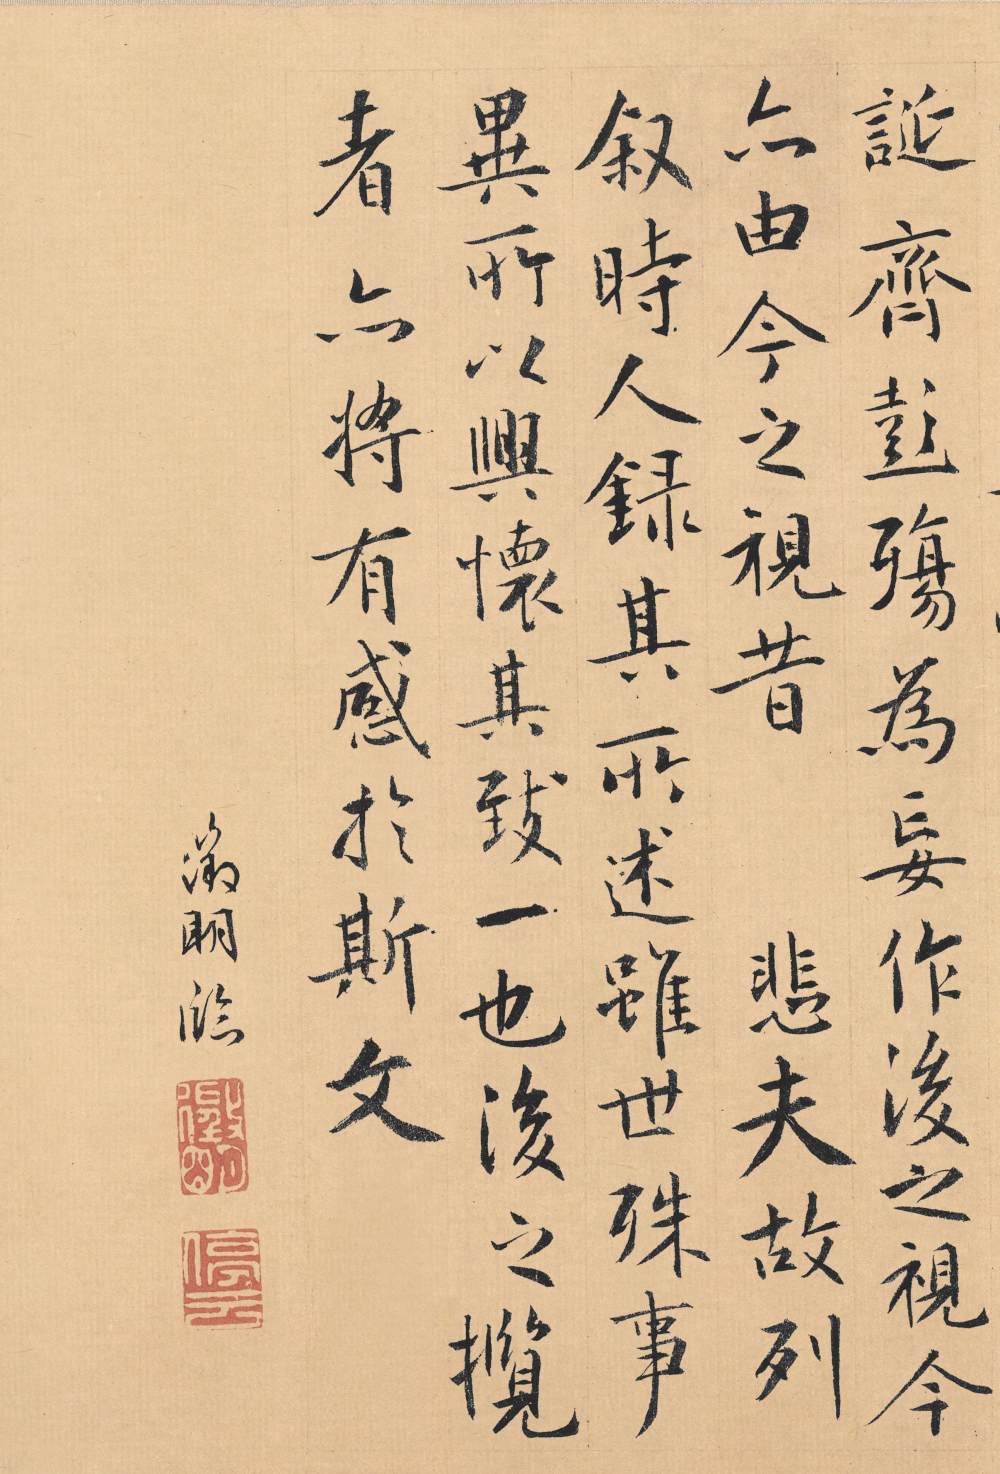 誕齊彭殤為妄作後之視今
亦由今之視昔 悲夫故列
叙時人録其所述雖世殊事
異所以興懷其致一也後之攬
者亦將有感於斯文
徵明臨
徵明
停云